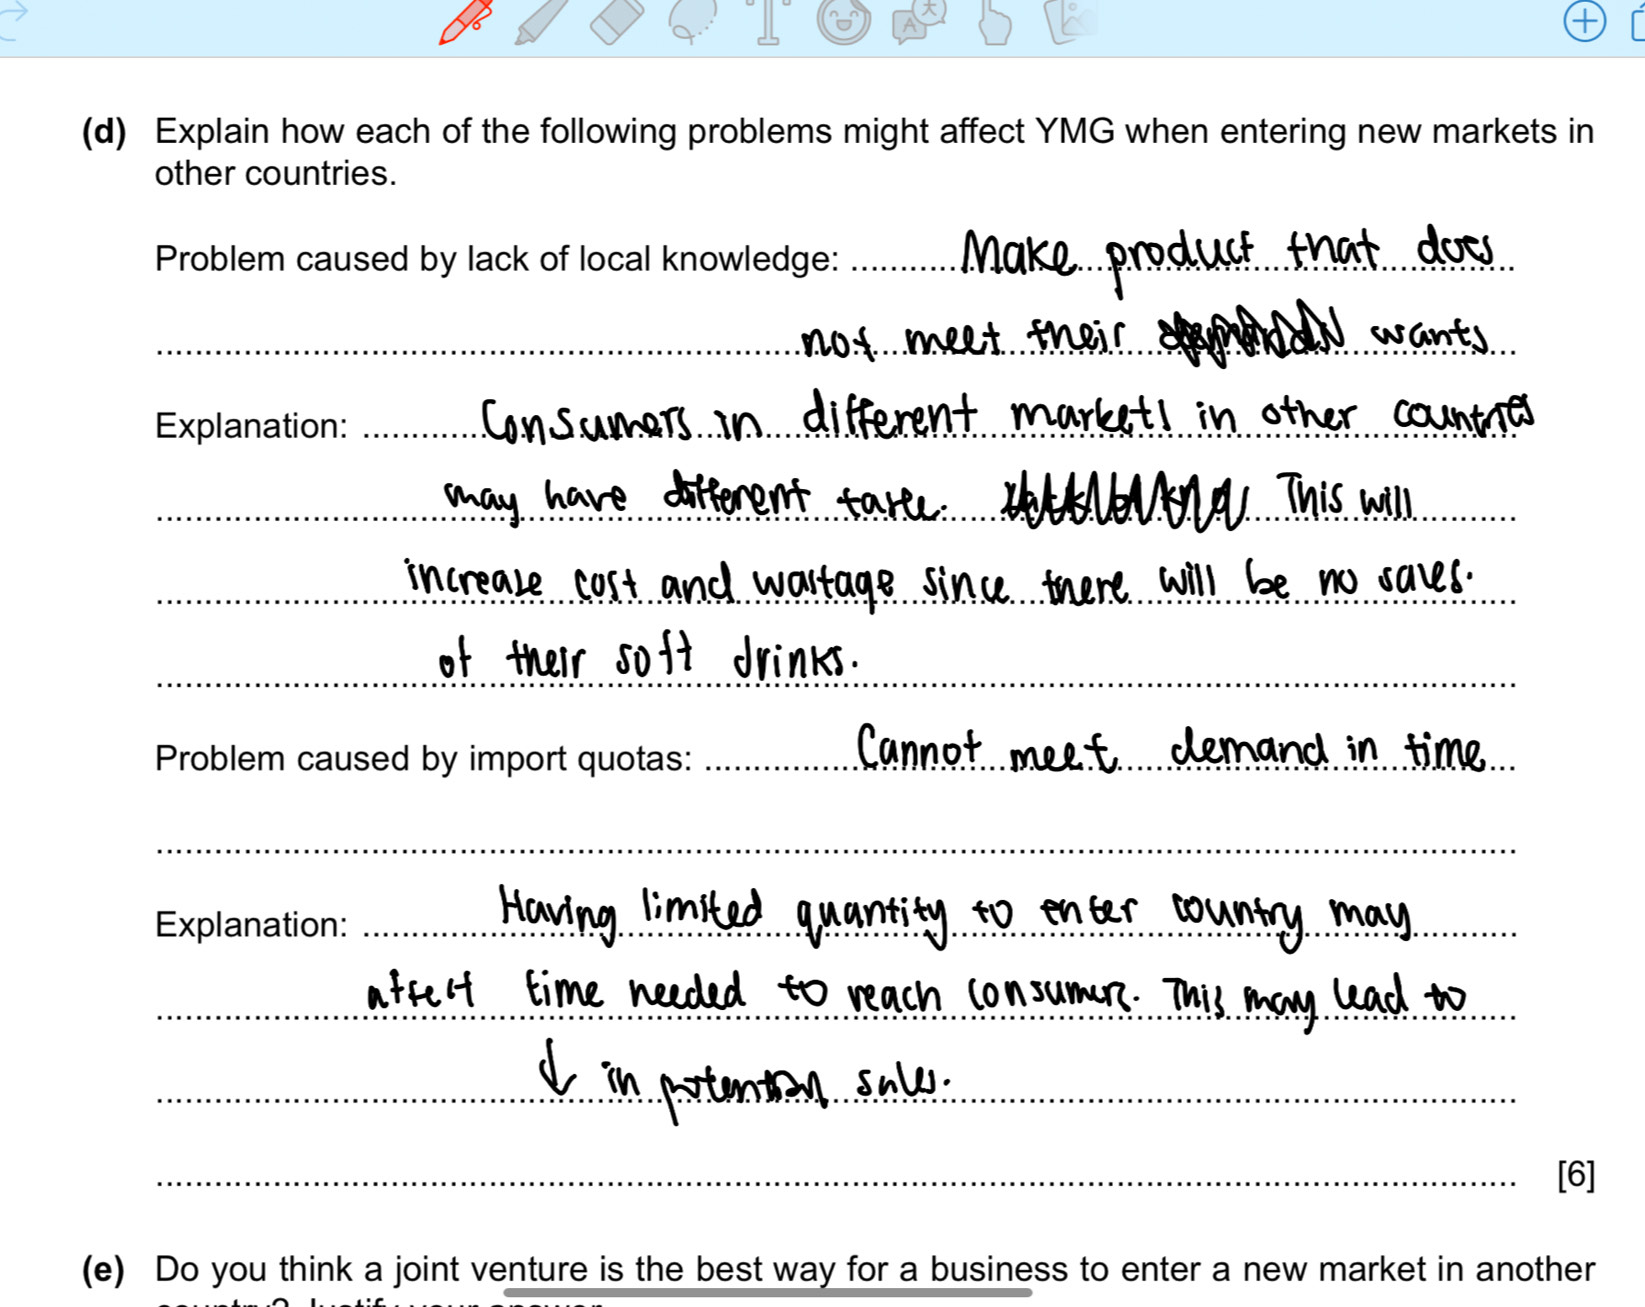 (d) Explain how each of the following problems might affect YMG when entering new markets in
other countries.
Problem caused by lack of local knowledge: Make product that does
not meet their wants
Explanation: Consumers in different markets in other countries
may have different taste. This will
increase cost and wastage since there will be no sales.
of their soft drinks.
Problem caused by import quotas: Cannot meet demand in time
Explanation: Having limited quantity to enter country may
affect time needed to reach consumers. This may lead to
↓ in potential sales.
[6]
(e) Do you think a joint venture is the best way for a business to enter a new market in another
country? Justify your answer.